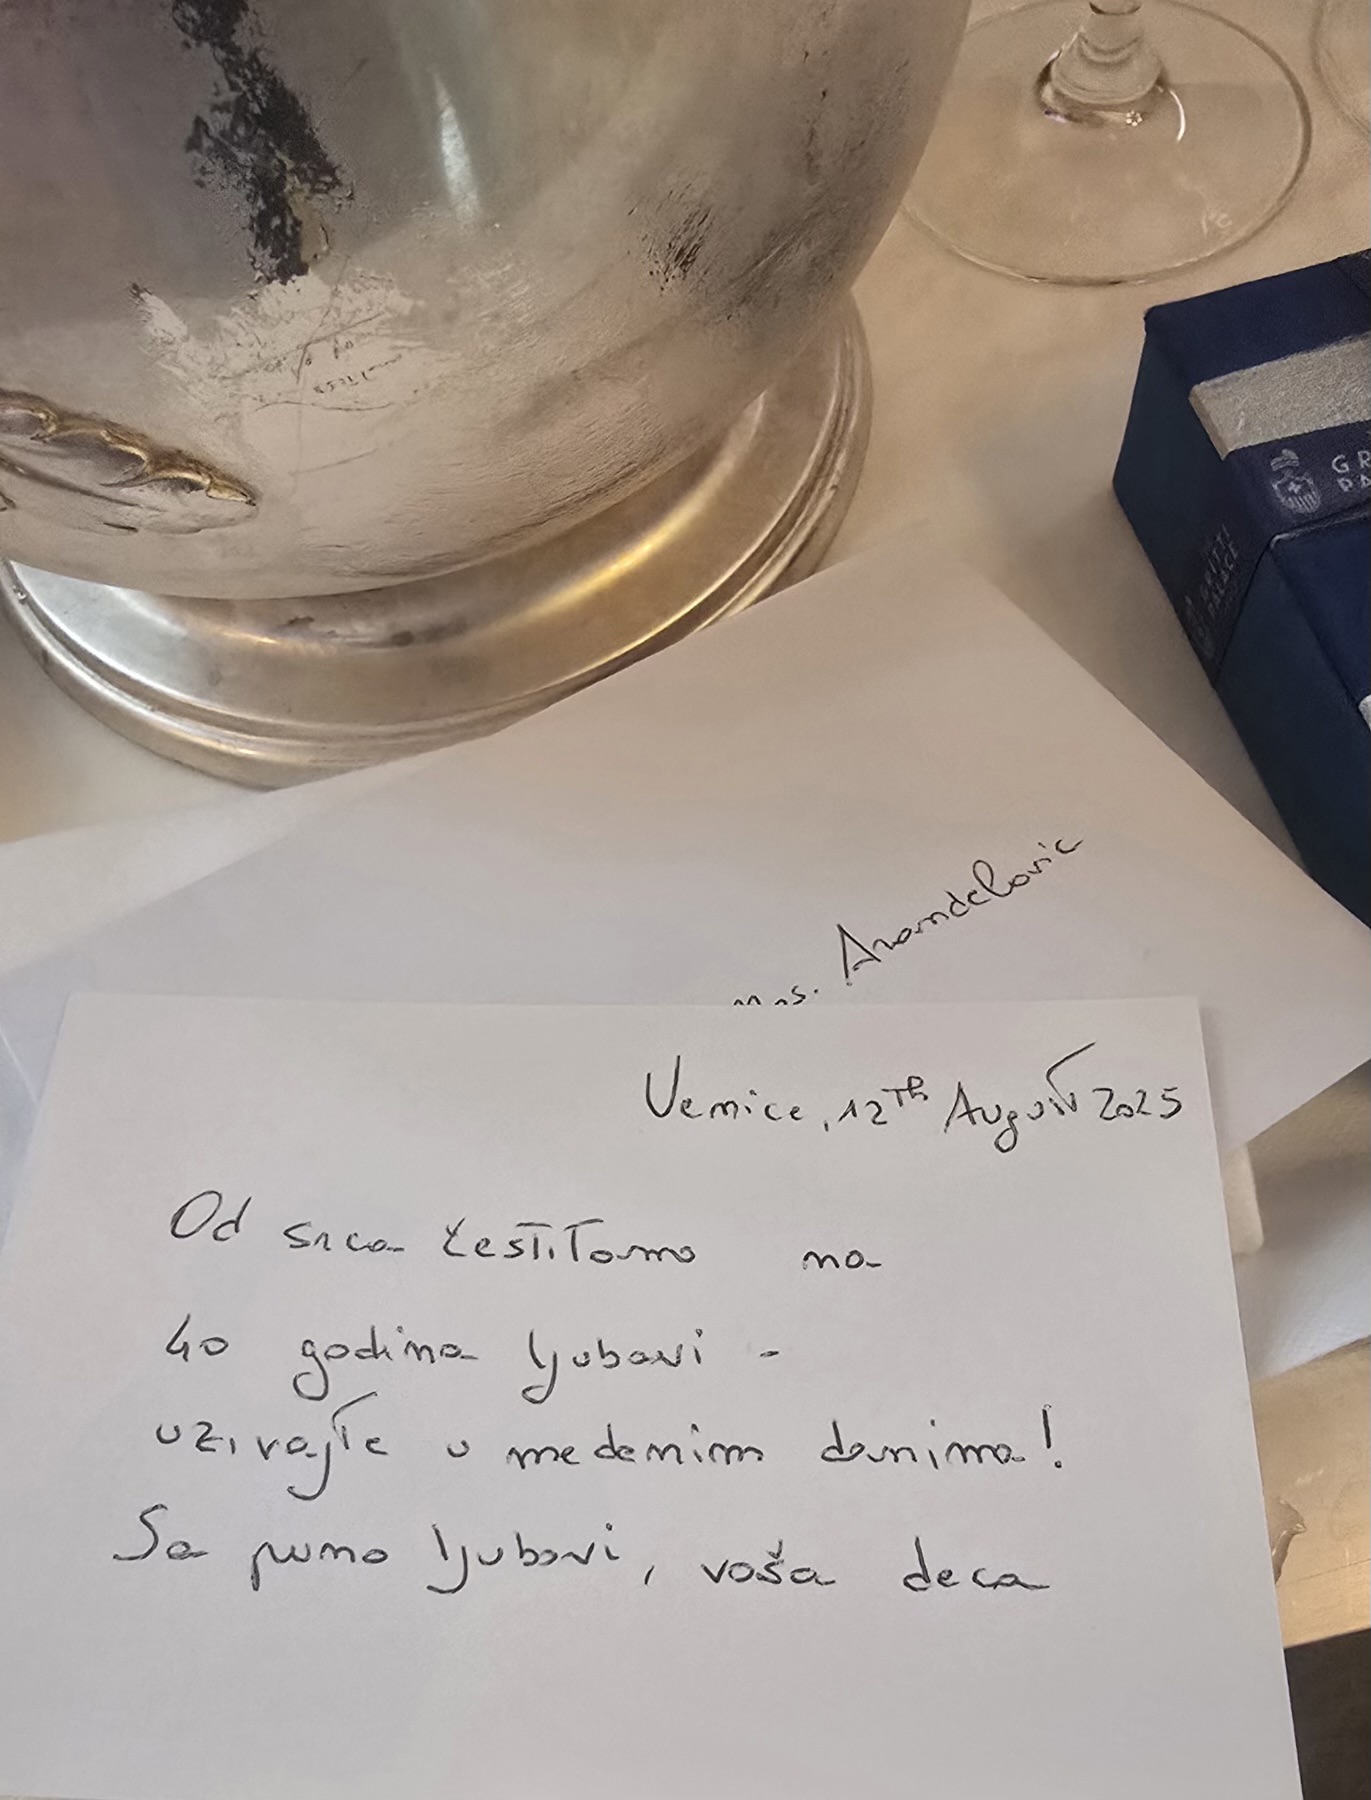 GR
PA
GRITTI
PALACE
Arandelovic
Venice, 12th August 2025
Od srca čestitamo na
40 godina ljubavi -
uzivajte u medenim danima!
Sa puno ljubavi, vaša deca